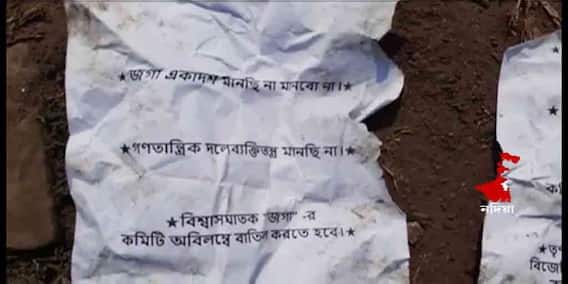 ★জগা একাদশ মানছি না মানবো না।★
★গণতান্ত্রিক দলেব্যক্তিতন্ত্র মানছি না।★
★বিশ্বাসঘাতক "জগা"-র
কমিটি অবিলম্বে বাতিল করতে হবে।★
নদিয়া
★তৃণ
বিজে